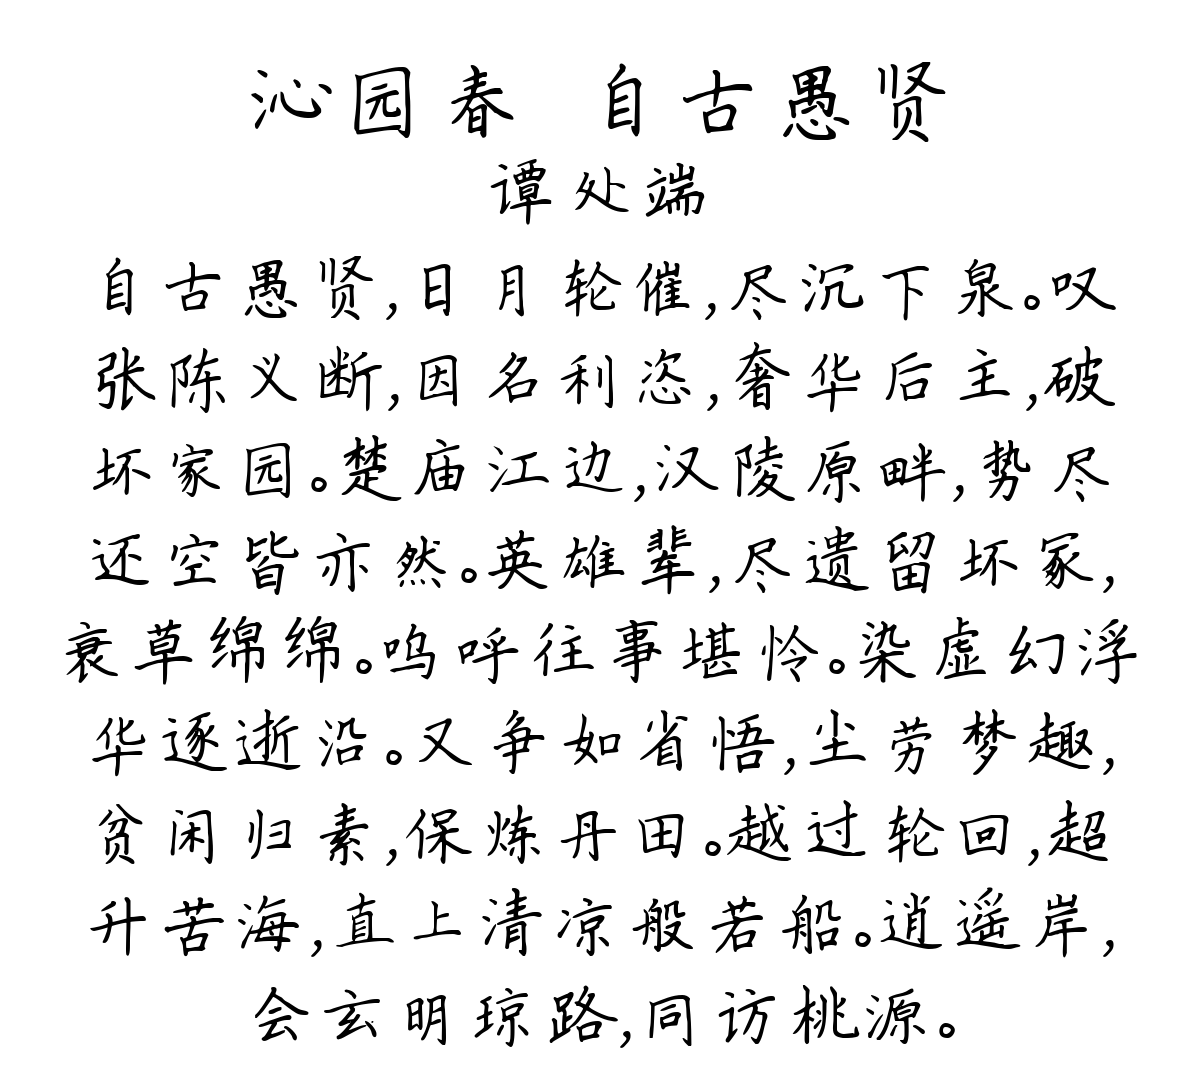 沁园春 自古愚贤
谭处端
自古愚贤,日月轮催,尽沉下泉。叹
张陈义断,因名利恣,奢华后主,破
坏家园。楚庙江边,汉陵原畔,势尽
还空皆亦然。英雄辈,尽遗留坏冢,
衰草绵绵。呜呼往事堪怜。染虚幻浮
华逐逝沿。又争如省悟,尘劳梦趣,
贫闲归素,保炼丹田。越过轮回,超
升苦海,直上清凉般若船。逍遥岸,
会玄明琼路,同访桃源。